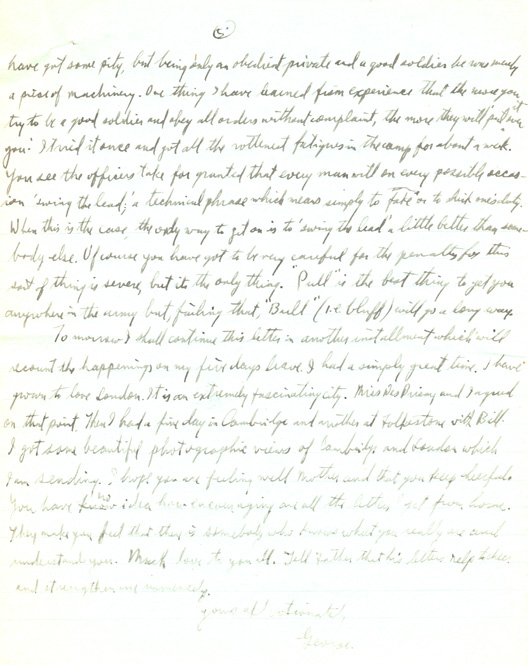 5
have got some pity, but being only an obedient private and a good soldier he was merely
a piece of machinery. One thing I have learned from experience that the more you
try to be a good soldier and obey all orders without complaint, the more they will "put it over
you." I tried it once and got all the rottenest fatigues in the camp for about a week.
You see the officers take for granted that every man will on every possibly occas-
ion 'swing the lead,' a technical phrase which means simply to "fake" or to shirk one's duty.
When this is the case, the only way to get on is to 'swing the lead' a little better than some-
body else. Of course you have got to be very careful for the penalty for this
sort of thing is severe, but it the only thing. "Pull" is the best thing to get you
anywhere in the army but, failing that, "Bull" (i.e. bluff) will go a long way.
To morrow I shall continue this letter in another installment which will
recount the happenings on my five days leave. I had a simply great time. I have
grown to love London. It is an extremely fascinating city. Miss Des Brisay and I agreed
on that point. Then I had a fine day in Cambridge and another at Folkestone with Bill.
I got some beautiful photographic views of Cambridge and London which
I am sending. I hope you are feeling well Mother and that you keep cheerful.
You have no idea how encouraging are all the letters I get from home.
They make you feel that there is somebody who knows what you really are and
understands you. Much love to you all. Tell Father that his letters help to cheer
and strengthen me immensely.
Yours affectionately
George.